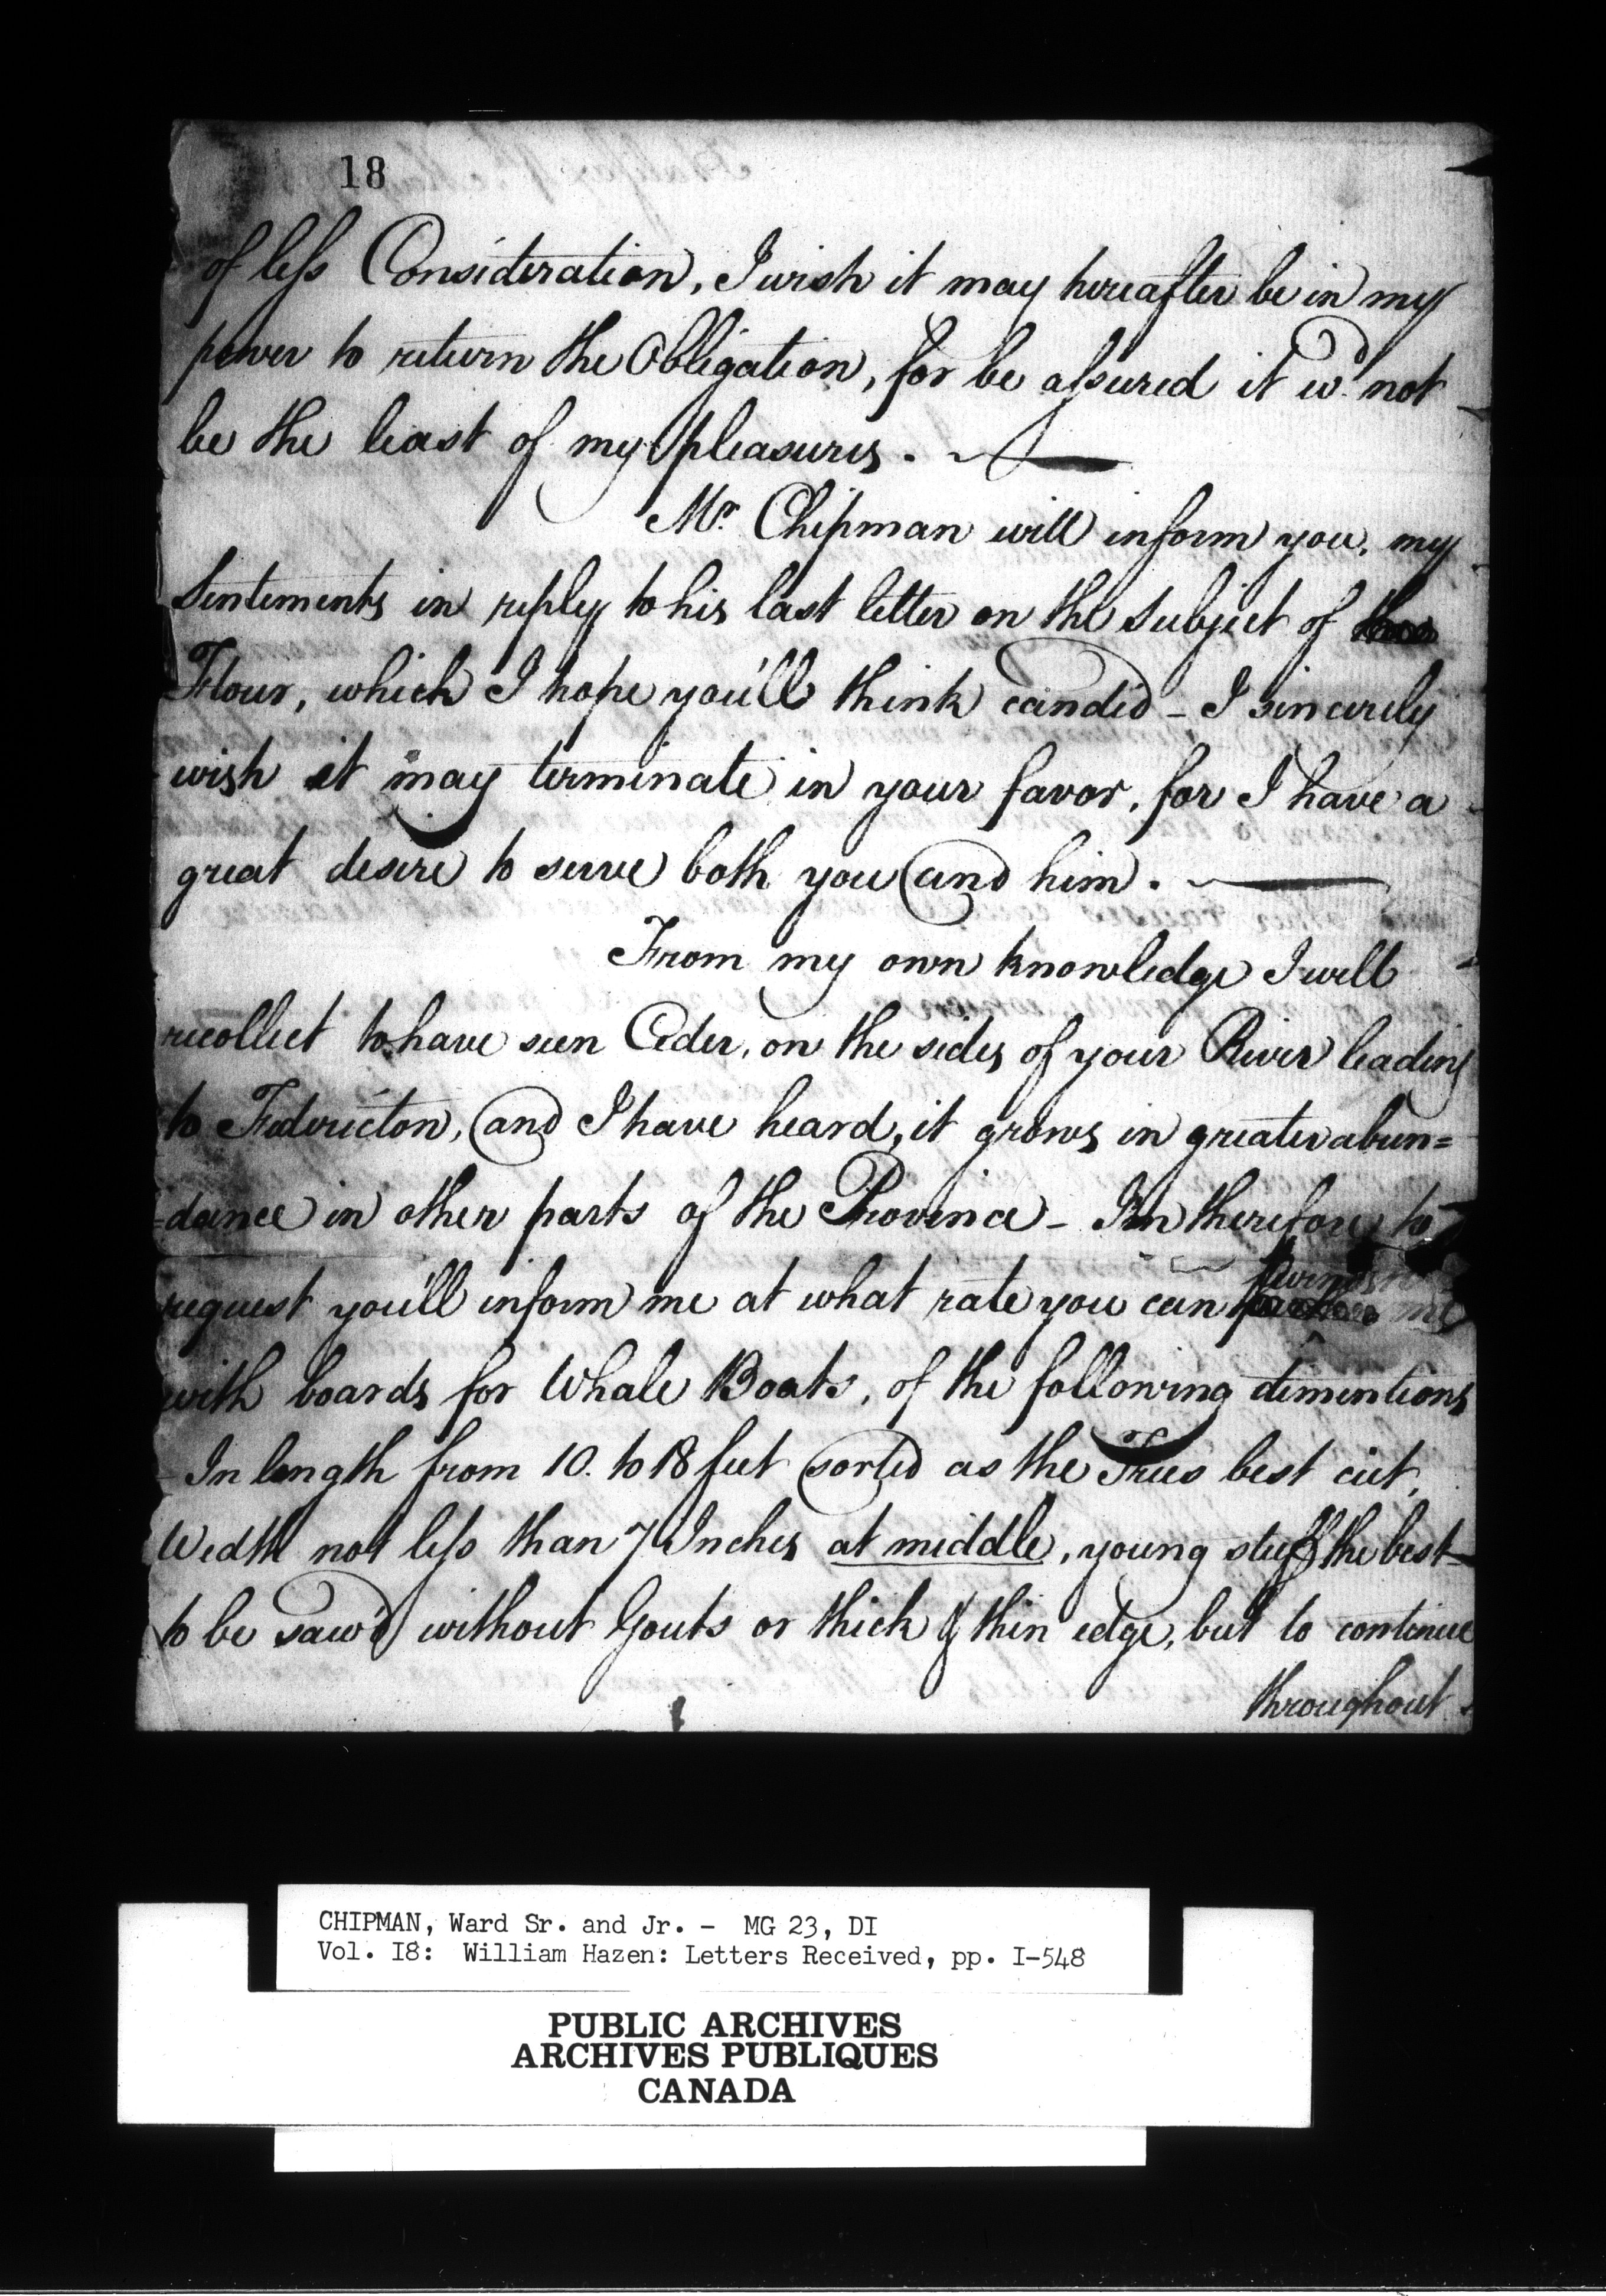 18
of less Consideration, I wish it may hereafter be in my
power to return the Obligation, for be assured it wd. not
be the least of my pleasures. —
Mr. Chipman will inform you, my
Sentiments in reply to his last letter on the Subject of
Flour, which I hope you'll think candid - I sincerely
wish it may terminate in your favor, for I have a
great desire to serve both you and him. —
From my own knowledge I well
recollect to have seen Ceder, on the sides of your River leading
to Federicton, and I have heard, it grows in greater abun=
=dance in other parts of the Province - I'm therefore to
furnish
request you'll inform me at what rate you can me
with boards for Whale Boats, of the following dimentions
- In length from 10. to 18 feet sorted as the Trees best cut,
Wedth not less than 7 Inches at middle, young stuff the best
to be saw'd without Gouts or thick & thin edge, but to continue
throughout
CHIPMAN, Ward Sr. and Jr. - MG 23, DI
Vol. I8: William Hazen: Letters Received, pp. I-548
PUBLIC ARCHIVES
ARCHIVES PUBLIQUES
CANADA